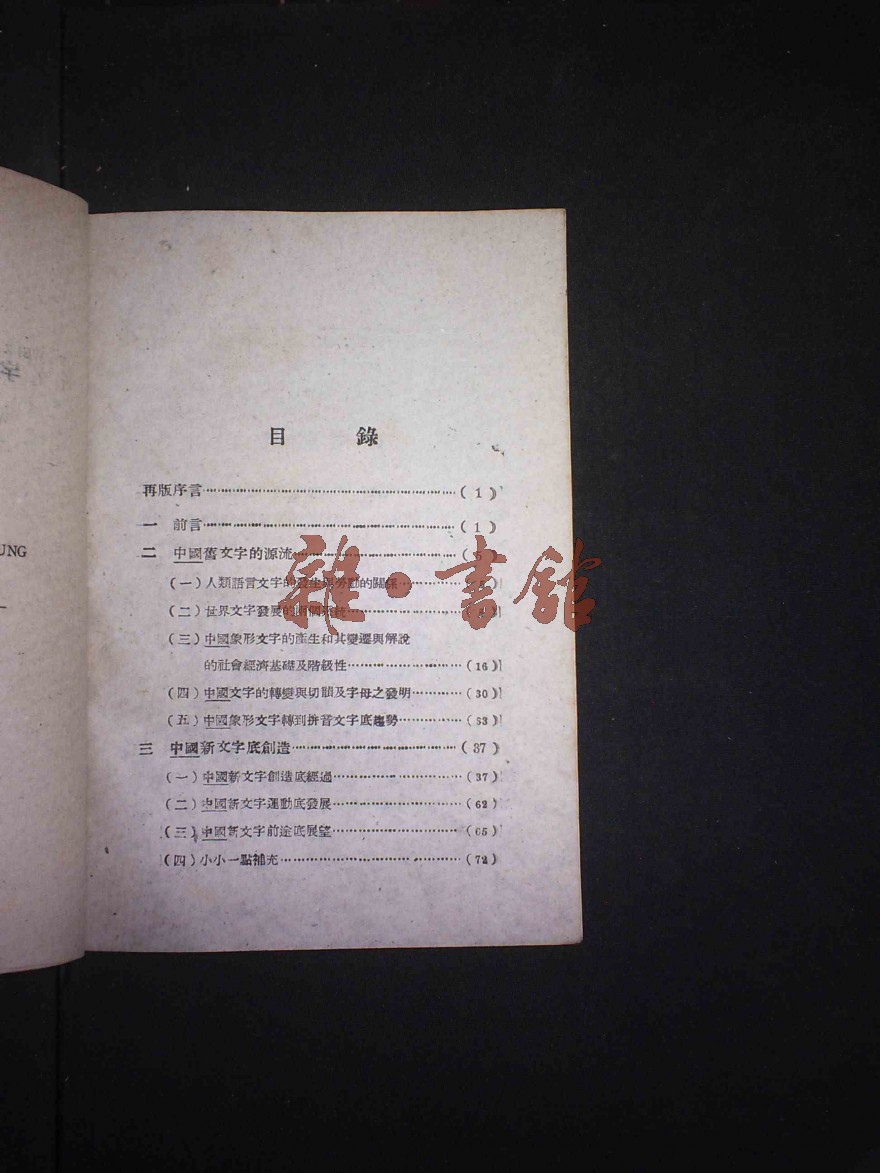 UNG
字
目 錄
再版序言……………………………( 1 )
一 前言……………………………( 1 )
二 中國舊文字的源流……………………( 5 )
(一)人類語言文字的發生與勞動的關係…………( 5 )
(二)世界文字發展的兩個系統……………
(三)中國象形文字的產生和其變遷與解說
的社會經濟基礎及階級性………………(16)
(四)中國文字的轉變與切韻及字母之發明………(30)
(五)中國象形文字轉到拼音文字底趨勢…………(33)
三 中國新文字底創造……………………( 37 )
(一)中國新文字創造底經過…………………(37)
(二)中國新文字運動底發展…………………(62)
(三)中國新文字前途底展望…………………(65)
(四)小小一點補充………………………(72)
雜·書館